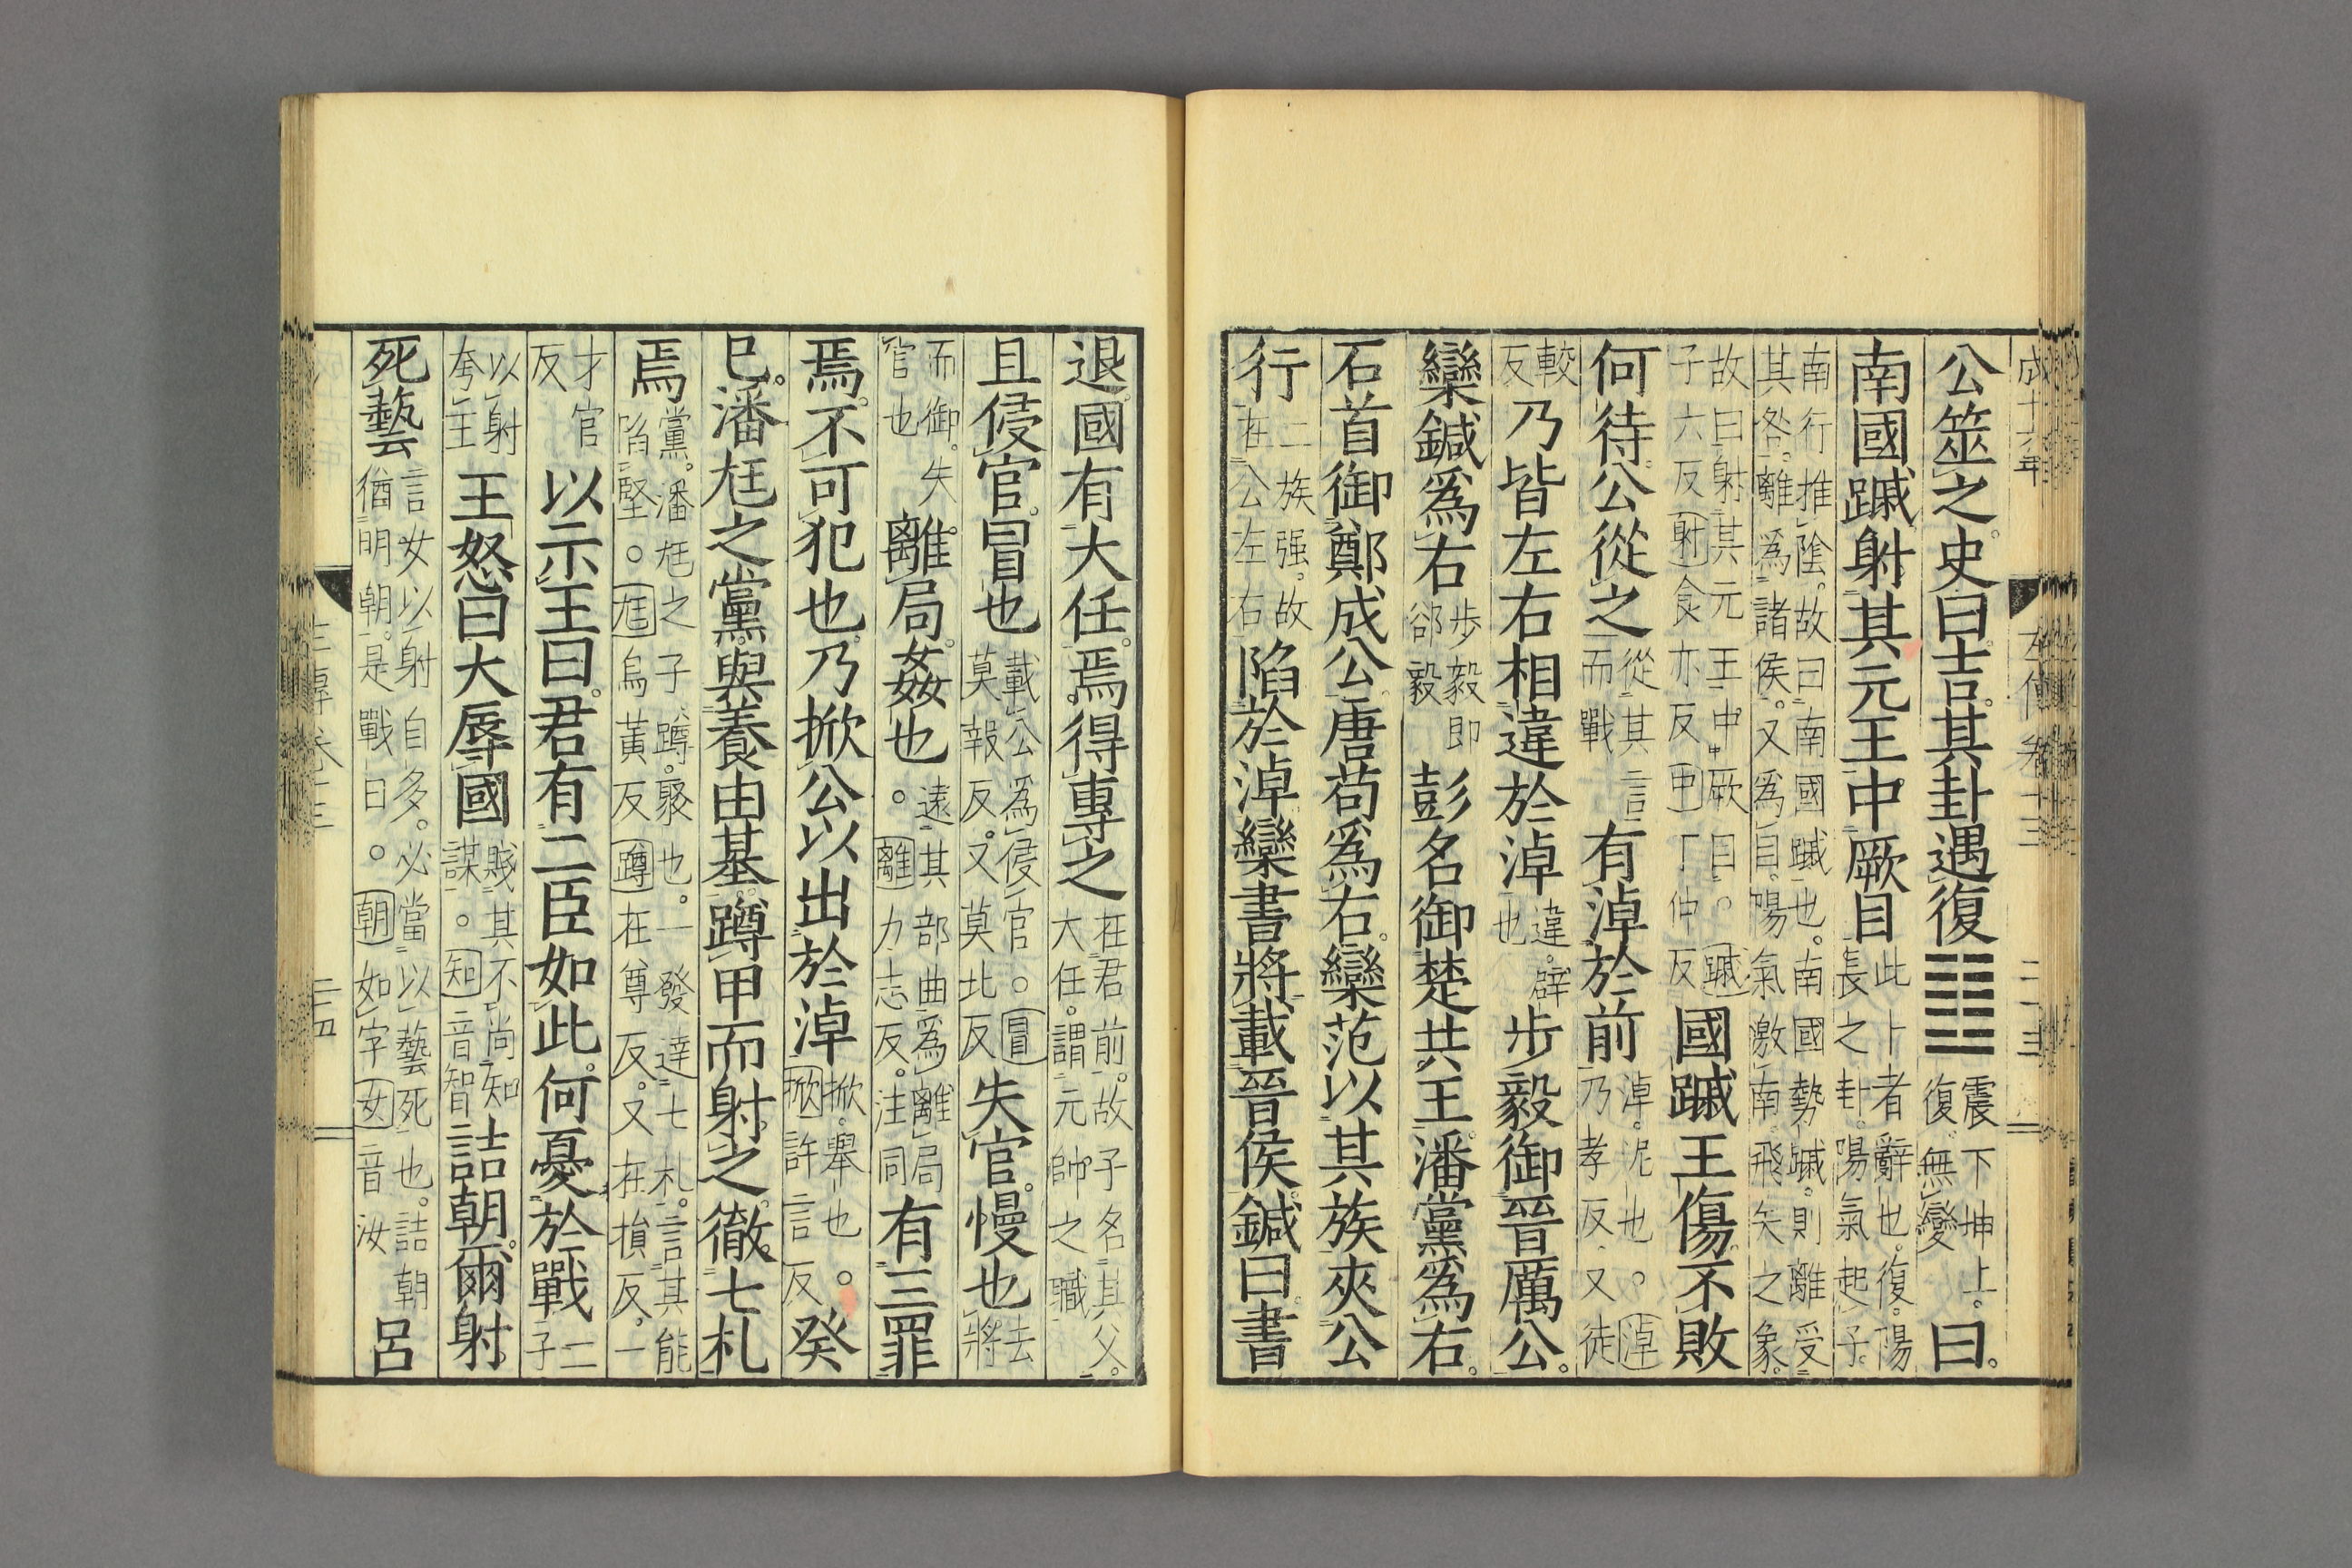 成十六年 左傳卷十三 二十三
公筮之史曰吉其卦遇復䷗震下坤上。復無變曰。
南國䠞射其元王中厥目此卜者辭也。復。陽長之卦。陽氣起子
南行推陰。故曰南國䠞也。南國勢䠞。則離受其咎。離爲諸侯。又爲目。陽氣激南。飛矢之象。
故曰射其元王中厥目。。䠞子六反射食亦反中丁仲反國䠞王傷不敗
何待公從之從其言而戰有淖於前淖。泥也。。淖乃孝反又徒
較反乃皆左右相違於淖違。辟也步毅御晉厲公。
欒鍼爲右步毅即郤毅彭名御楚共王潘黨爲右。
石首御鄭成公唐苟爲右。欒范以其族夾公
行二族强。故在公左右陷於淖欒書將載晉侯鍼曰書
退國有大任。焉得專之在君前。故子名其父。大任。謂元帥之職
且侵官。冒也載公爲侵官。。冒莫報反。又莫北反失官。慢也去將
而御。失官也離局。姦也遠其部曲爲離局。。離力志反。注同有三罪
焉。不可犯也乃掀公以出於淖掀。舉也。。掀許言反癸
巳。潘尫之黨與養由基蹲甲而射之徹七札
焉黨。潘尫之子。蹲。聚也。一發達七札。言其能陷堅。。尫烏黃反蹲在尊反。又在損反。一
才官反以示王曰。君有二臣如此。何憂於戰二子
以射夸王王怒曰大辱國賤其不尚知謀。。知音智詰朝。爾射
死藝言女以射自多。必當以藝死也。詰朝猶明朝。是戰日。。朝如字女音汝呂